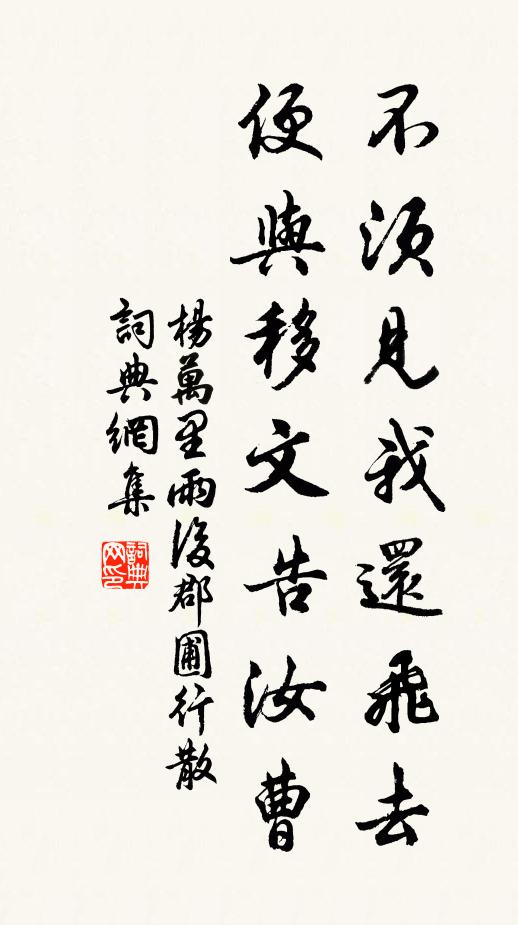 不須見我還飛去
便與移文告汝曹
楊萬里雨後郡圃行散
詞典網集
詞典网印